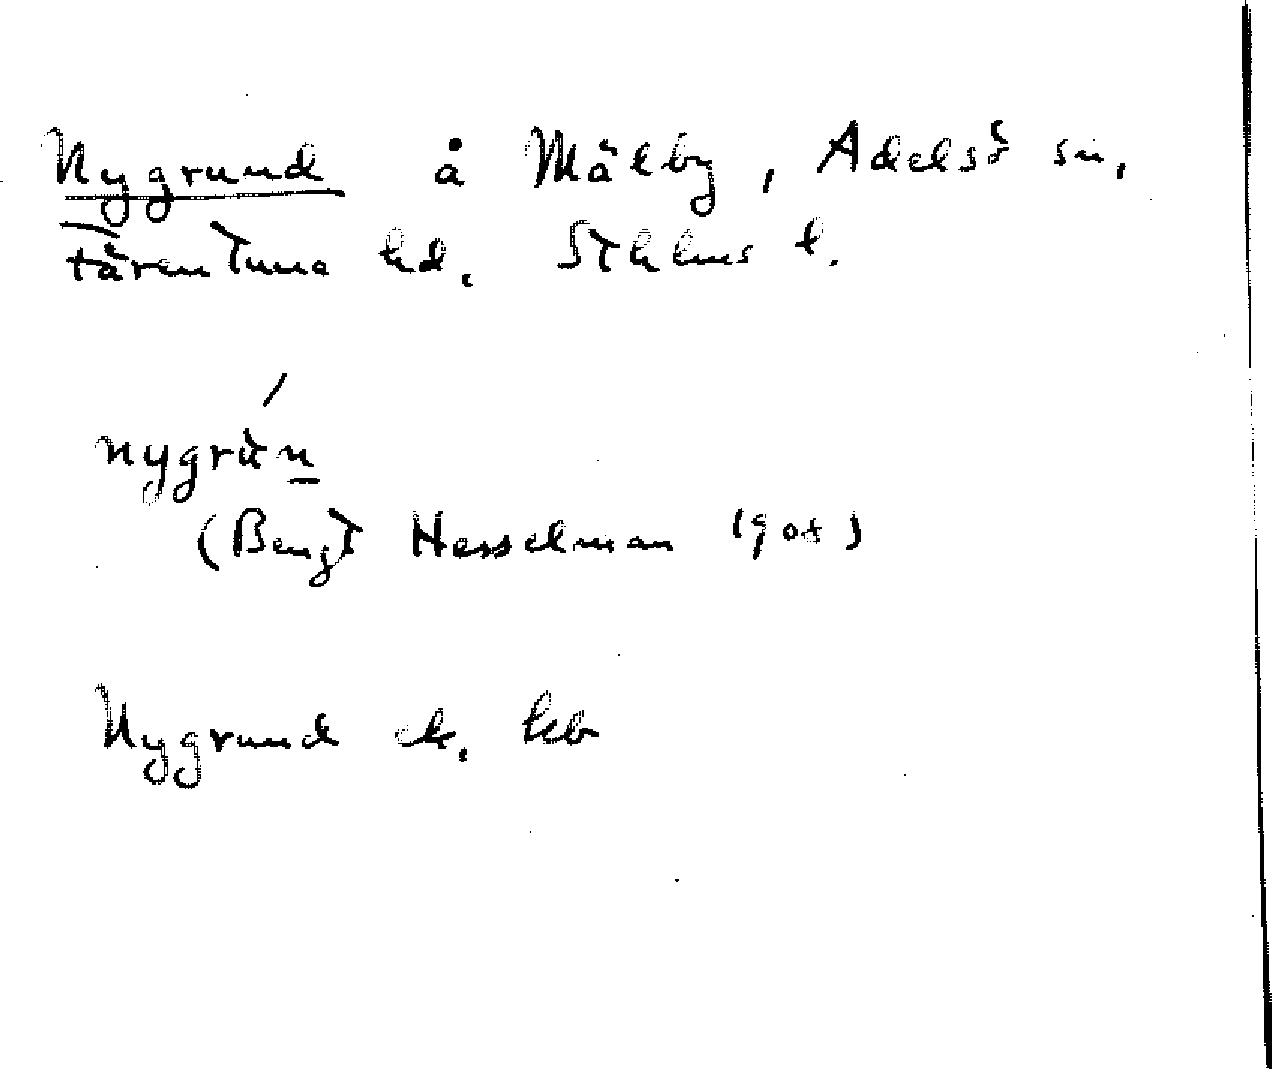 Nygrund å Mälby, Adelsö sn,
Färentuna hd. Sthlms l.
nygrún
(Bengt Hesselman 1904)
Nygrund ek.